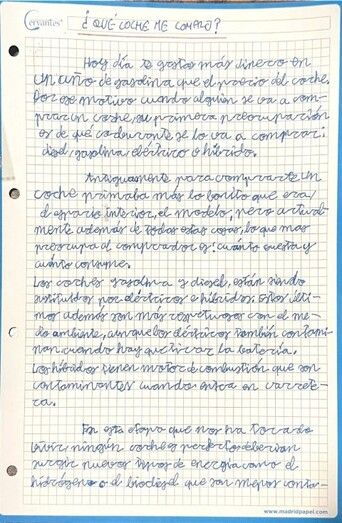 Cervantes
¿QUÉ COCHE ME COMPRO?
Hoy día te gastas más dinero en
un año de gasolina que el precio del coche.
Por ese motivo cuando alguien se va a com-
prar un coche, su primera preocupación
es de que carburante se lo va a comprar:
diesel, gasolina eléctrico o híbrido.
Antiguamente para comprarte un
coche primaba más lo bonito que era,
el espacio interior, el modelo; pero actual-
mente además de todas estas cosas, lo que mas
preocupa al comprador es: cuánto cuesta y
cuánto consume.
Los coches gasolina y diesel, están siendo
sustituidos por eléctricos e híbridos; estos últi-
mos además son más respetuosos con el me-
dio ambiente, aunque los eléctricos también contami-
nan cuando hay que tirar la batería.
Los híbridos tienen motor de combustión que son
contaminantes cuando entra en carrete-
ra.
En esta etapa que nos ha tocado
vivir, ningún coche es perfecto deberían
surgir nuevos tipos de energía como el
hidrógeno o el biodiesel que son menos conta-
www.madridpapel.com